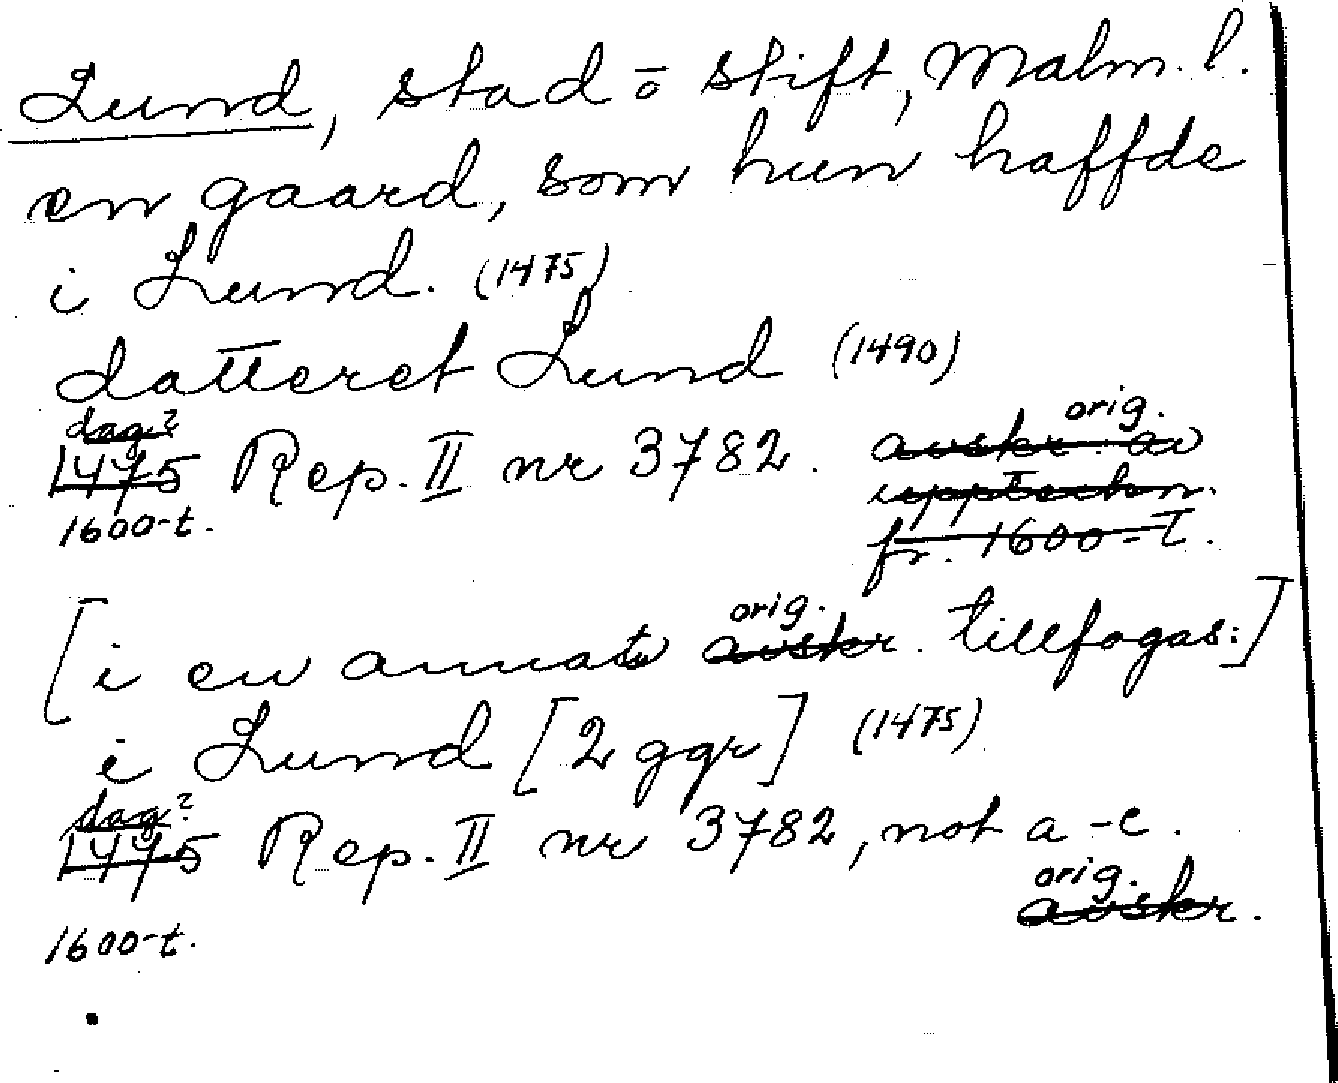 Lund, stad o stift, Malm. l.
en gaard, som hun haffde
i Lund. (1475)
datteret Lund (1490)
orig.
dag?
1475 Rep. II nr 3782. avskr. av
upptechn.
1600-t.
fr. 1600-t.
orig.
[i en annat avskr. tillfogas:]
i Lund [2 ggr] (1475)
dag?
1475 Rep. II nr 3782, not a-c.
orig.
avskr.
1600-t.